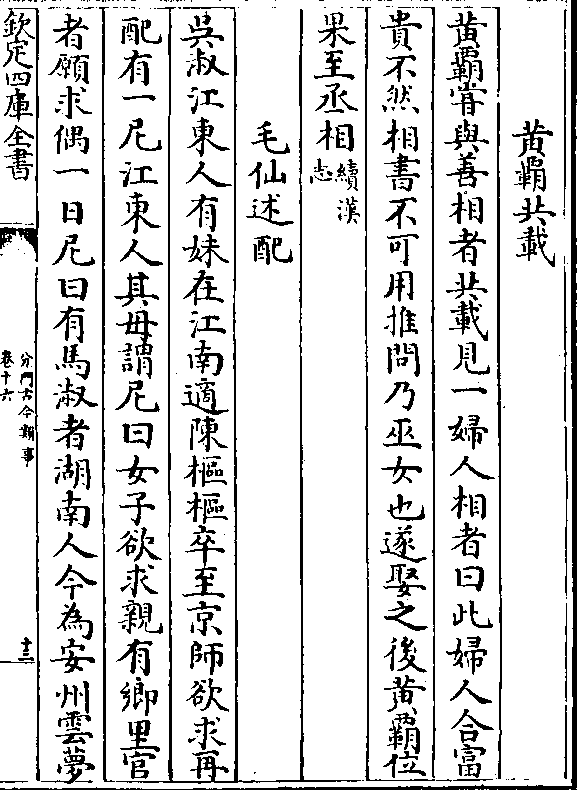 黄覇共載
黄覇嘗與善相者共載見一婦人相者曰此婦人合富
貴不然相書不可用推問乃巫女也遂娶之後黄覇位
果至丞相續漢志
毛仙述配
吳淑江東人有妹在江南適陳樞樞卒至京師欲求再
配有一尼江東人其母謂尼曰女子欲求親有鄉里官
者願求偶一日尼曰有馬淑者湖南人今為安州雲夢
欽定四庫全書
分門古今類事
卷十六
十三